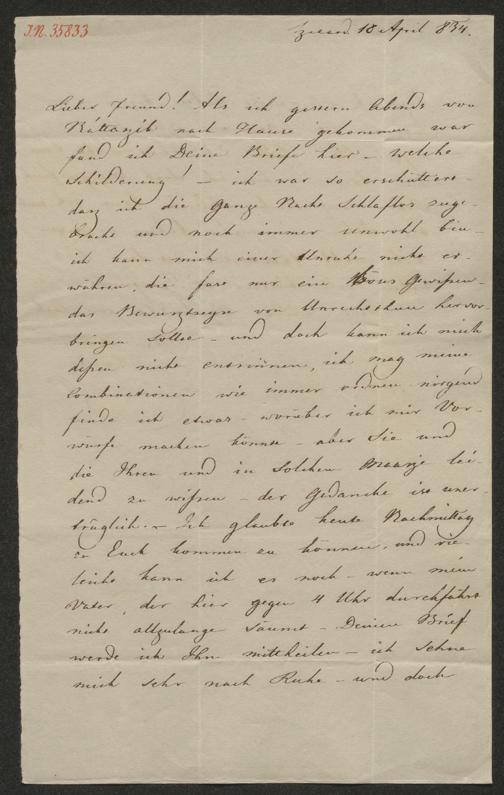 J.N. 35833
18 April 854.
Lieber Freund! Als ich gestern Abends von
nach Hause gekommen war
fand ich Deine Briefe hier – welche
Schilderung! – ich war so erschüttert
dasz ich die ganze Nacht Schlaflos zuge-
bracht und noch immer unwohl bin –
ich kann mich einer Unruhe nicht er-
währen, die fast nur ein Böses Gewissen –
das Bewusztseyn von Unrechtthun hervor-
bringen sollte – und doch kann ich mich
deszen nicht entsinnen, ich mag meine
Combinationen wie immer ordnen nirgend
finde ich etwas – worüber ich mir Vor-
würfe machen könnte – aber Sie und
die Ihren und in Solchem Maasze lei-
dend zu wiszen – der Gedanke ist uner-
träglich. – Ich glaubte heute Nachmittag
zu Euch kommen zu können, und vie-
leicht kann ich es noch – wenn mein
Vater, der hier gegen 4 Uhr durchfährt
nicht allzulange säumt – Deinen Brief
werde ich Ihm mittheilen – ich sehne
mich sehr nach Ruhe – und doch